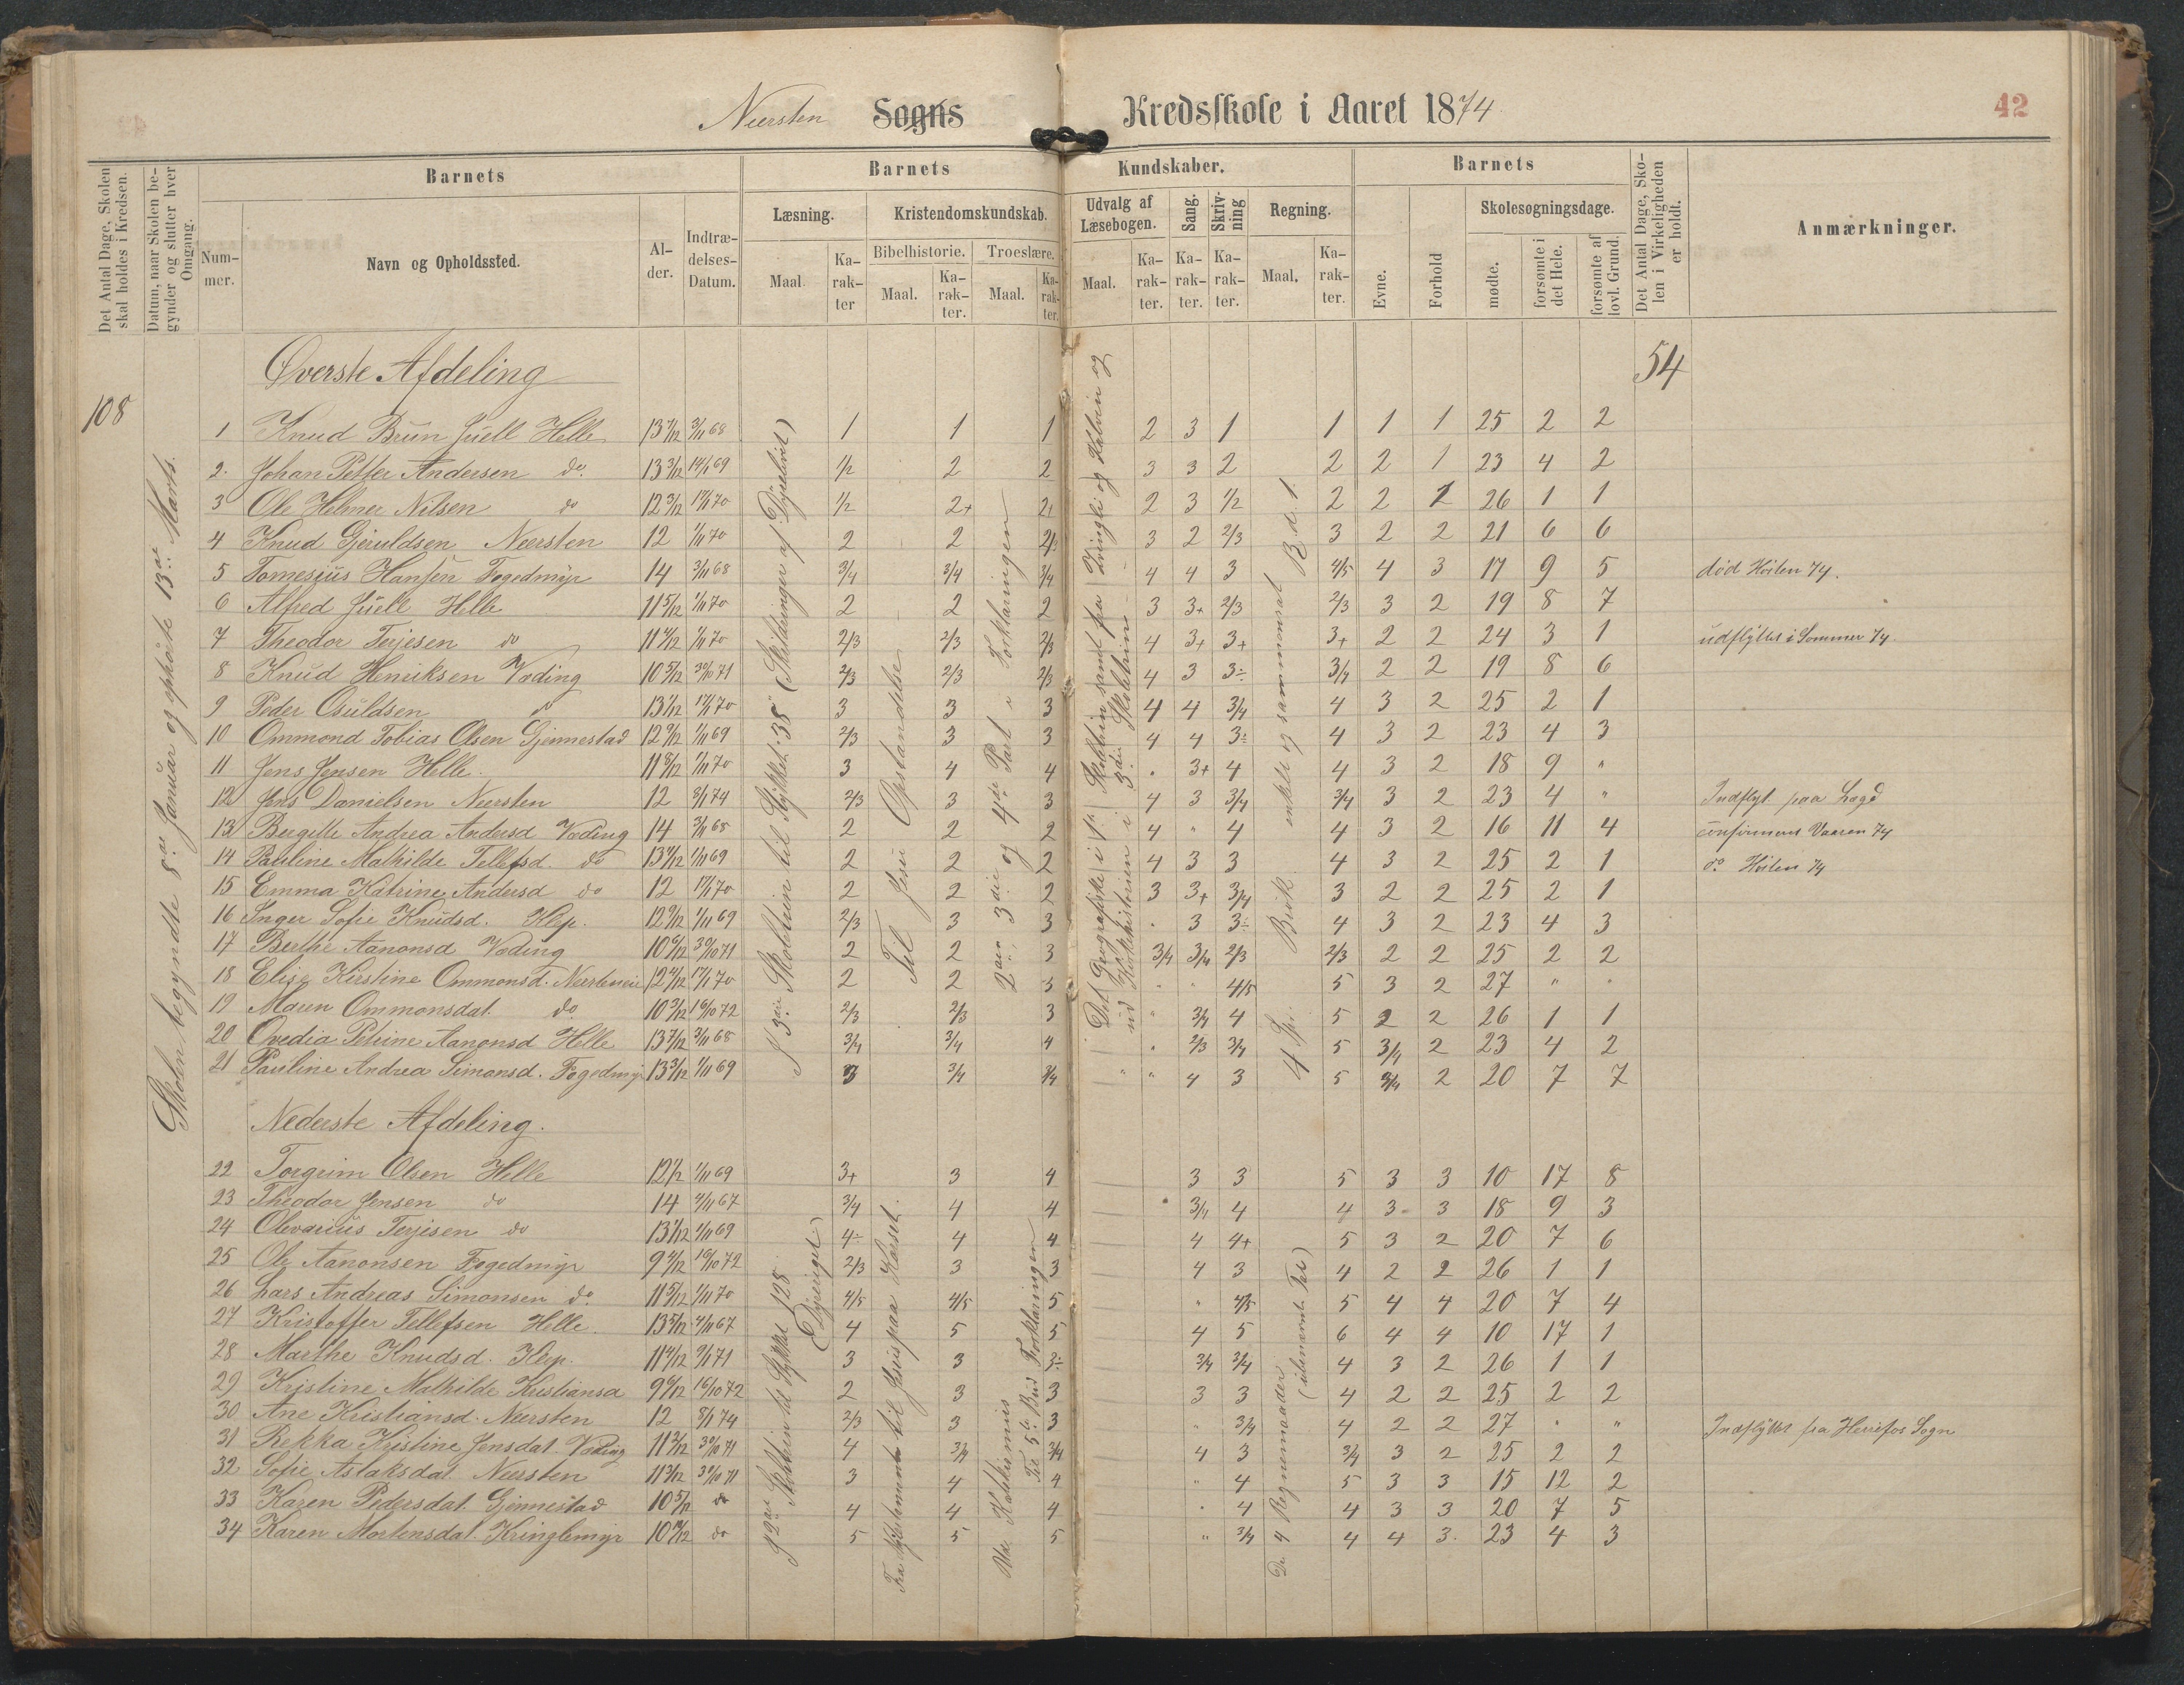 Neersten Sogns Kredsskole i Aaret 1874.
42
Det Antal Dage, Skolen skal holdes i Kredsen.
Datum, naar Skolen begynder og slutter hver Omgang.
Barnets
Nummer.
Navn og Opholdssted.
Alder.
Indtrædelses-Datum.
Barnets Kundskaber.
Læsning.
Maal.
Karakter
Kristendomskundskab.
Bibelhistorie.
Maal.
Karakter.
Troeslære.
Maal.
Karakter.
Udvalg af Læsebogen.
Maal.
Karakter.
Sang.
Karakter.
Skrivning
Karakter.
Regning.
Maal.
Karakter.
Barnets
Evne.
Forhold
Skolesøgningsdage.
mødte.
forsømte i det Hele.
forsømte af lovl. Grund.
Det Antal Dage, Skolen i Virkeligheden er holdt.
Anmærkninger.
108
Skolen begyndte 8de Januar og ophørte 13de Marts.
54
Øverste Afdeling
I 3die Skoletrin til Stykket 38 (Skildringer af Dyrelivet)
Til Jesu Opstandelse
2den, 3die og 4de Part i Forklaringen
Det Geografiske i 1ste Skoletrin samt fra Zvingli og Kalvin og ud Kirkehistorien i 3die Skoletrin
4 Spe. Brøk enkelt og sammensat R. d. 1.
1 Knud Brun Juell Helle 13 7/12 3/11 68 1 1 1 2 3 1 1 1 1 25 2 2
2. Johan Petter Andersen do. 13 3/12 14/1 69 1/2 2 2 3 3 2 2 2 1 23 4 2
3 Ole Helmer Nilsen do 12 3/12 17/1 70 1/2 2+ 2+ 2 3 1/2 2 2 2 26 1 1
4 Knud Gjeruldsen Neersten 12 1/11 70 2 2 2/3 3 2 2/3 3 2 2 21 6 6
5 Tomesius Hansen Fogedmyr 14 3/11 68 3/4 3/4 3/4 4 4 3 4/5 4 3 17 9 5 død Høsten 74.
6 Alfred Juell Helle 11 5/12 1/11 70 2 2 2 3 3+ 2/3 2/3 3 2 19 8 7
7 Theodor Terjesen do 11 4/12 1/11 70 2/3 2/3 2/3 4 3+ 3+ 3+ 2 2 24 3 1 udflyttet i Sommer 74.
8 Knud Henriksen Vøding 10 5/12 30/10 71 2/3 2/3 2/3 4 3 3÷ 3/4 2 2 19 8 6
9 Peder Osuldsen do 13 1/12 17/1 70 3 3 3 4 4 3/4 4 3 2 25 2 1
10 Ommond Tobias Olsen Gjennestad 12 9/12 1/11 69 2/3 3 3 4 4 3÷ 4 3 2 23 4 3
11 Jens Jensen Helle. 11 8/12 1/11 70 3 4 4 " 3+ 4 4 3 2 18 9 "
12 Jens Danielsen Neersten 12 8/1 74 2/3 3 3 4 3 3/4 3/4 3 2 23 4 " Indflyt. paa Lægd
13 Bergitte Andrea Andersd Vøding 14 3/11 68 2 2 2 4 " 4 4 3 2 16 11 4 confirmeret Vaaren 74
14 Pauline Mathilde Tellefsd. do 13 4/12 1/11 69 2 2 2 4 3 3 4 3 2 25 2 1 do Høsten 74
15 Emma Katrine Andersd do 12 17/1 70 2 2 2 3 3+ 3/4 3 2 2 25 2 1
16 Inger Sofie Knudsd. Klep. 12 9/12 1/11 69 2/3 3 3 " 3 3÷ 4 3 2 23 4 3
17 Berthe Aanonsd Vøding 10 6/12 30/10 71 2 2 3 3/4 3/4 2/3 2/3 2 2 25 2 2
18 Elise Kirstine Ommonsd. 12 4/12 17/1 70 2 2 3 " " 4/5 5 3 2 27 " "
19 Maren Ommonsdat. do 10 3/12 16/10 72 2/3 2/3 3 " 3/4 4 5 2 2 26 1 1
20 Ovedia Petrine Aanonsd Helle 13 7/12 3/11 68 3/4 3/4 4 " 2/3 3/4 5 3/4 2 23 4 2
21 Pauline Andrea Simonsd. Fogedmyr 13 3/12 1/11 69 3 3/4 3/4 " " 4 3 5 3/4 2 20 7 7
Nederste Afdeling.
I 2det Skoletrin til Stykket 128 (Dyreriget)
Fra til Jesus paa Korset.
Katekismus til 5te Bud Forklaringen
De 4 Regnemaader (ubenævnte Tal)
22 Torgrim Olsen Helle 12 1/2 1/11 69 3+ 3 4 3 3 5 3 3 10 17 8
23 Theodor Jensen do 14 4/11 67 3/4 4 4 3/4 4 4 3 3 18 9 3
24 Olevarius Terjesen do 13 1/12 1/11 69 4÷ 4 4 4 4+ 5 3 2 20 7 6
25 Ole Aanonsen Fogedmyr 9 4/12 16/10 72 2/3 3 3 4 3 4 2 2 26 1 1
26 Lars Andreas Simonsen do. 11 5/12 1/11 70 4/5 4/5 5 " 4/5 5 4 4 20 7 4
27 Kristoffer Tellefsen Helle. 13 5/12 4/11 67 4 5 5 4 5 6 4 4 10 17 1
28 Marthe Knudsd. Klep. 11 4/12 9/1 71 3 3 3÷ 3/4 3/4 4 3 2 26 1 1
29 Kristine Mathilde Kristiansd 9 6/12 16/10 72 2 3 3 3 3 4 2 2 25 2 2
30 Ane Kristiansd. Neersten 12 8/1 74 2/3 3 3 " 3/4 4 2 2 27 " " Indflyttet fra Herrefos Sogn
31 Rekka Kristine Jensdat. Vøding 11 2/12 30/10 71 4 3/4 3/4 4 3 3/4 3 2 25 2 2
32 Sofie Aslaksdat. Neersten 11 3/12 30/10 71 3 4 4 " 4 5 3 3 15 12 2
33 Karen Pedersdat. Gjennestad 10 5/12 do 4 4 4 " 4 4 3 3 20 7 5
34 Karen Mortensdat. Kringlemyr 10 10/12 do 5 5 5 " 3/4 4 4 3. 23 4 3